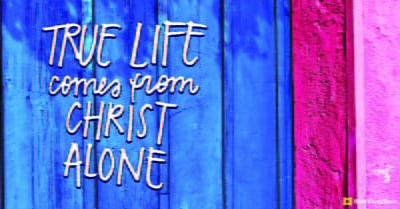 TRUE LIFE
comes from
CHRIST
ALONE